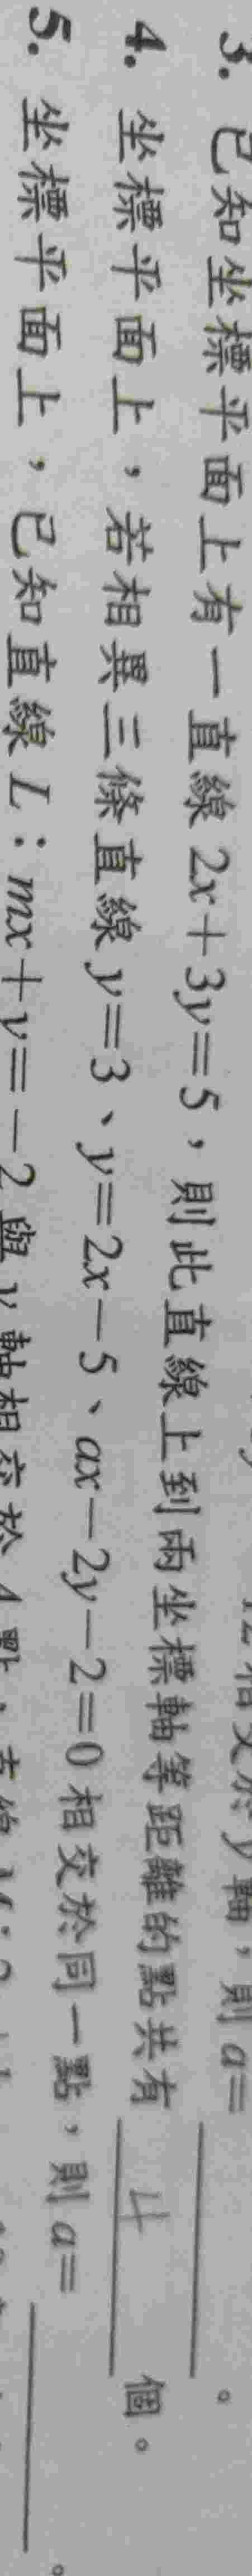 相交於y軸，則a=＿＿＿。
3. 已知坐標平面上有一直線2x+3y=5，則此直線上到兩坐標軸等距離的點共有 4 個。
4. 坐標平面上，若相異三條直線y=3、y=2x-5、ax-2y-2=0相交於同一點，則a=＿＿＿。
5. 坐標平面上，已知直線L：mx+y=-2與y軸相交於A點，